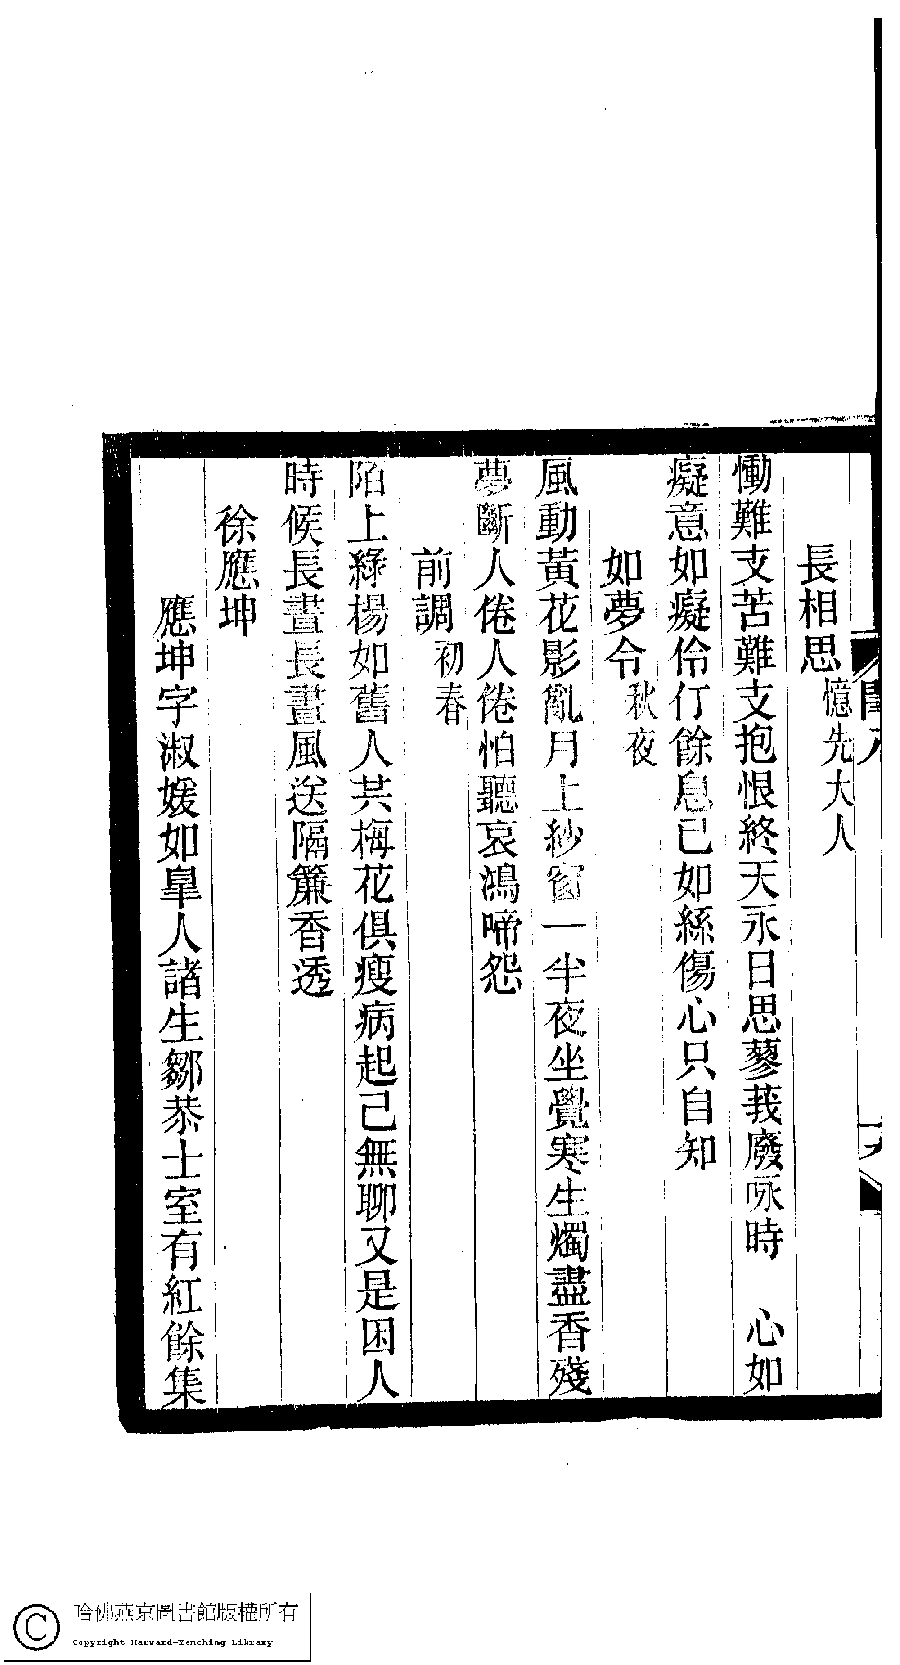 長相思憶先大人
慟難支苦難支抱恨終天永日思蓼莪廢咏時　心如
癡意如癡伶仃餘息已如絲傷心只自知
如夢令秋夜
風動黃花影亂月上紗窗一半夜坐覺寒生燭盡香殘
夢斷人倦人倦怕聽哀鴻啼怨
前調初春
陌上綠楊如舊人共梅花俱瘦病起己無聊又是困人
時候長晝長晝風送隔簾香透
徐應坤
應坤字淑媛如臯人諸生鄒恭士室有紅餘集
哈佛燕京圖書館版權所有
Copyright Harvard-Yenching Library